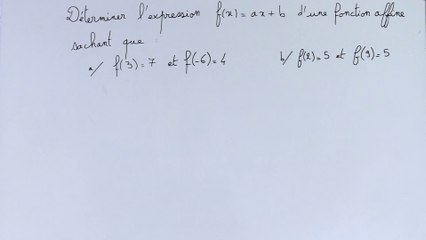 Déterminer l'expression f(x) = ax + b d'une fonction affine
sachant que
a/ f(3) = 7 et f(-6) = 4 b/ f(2) = 5 et f(9) = 5